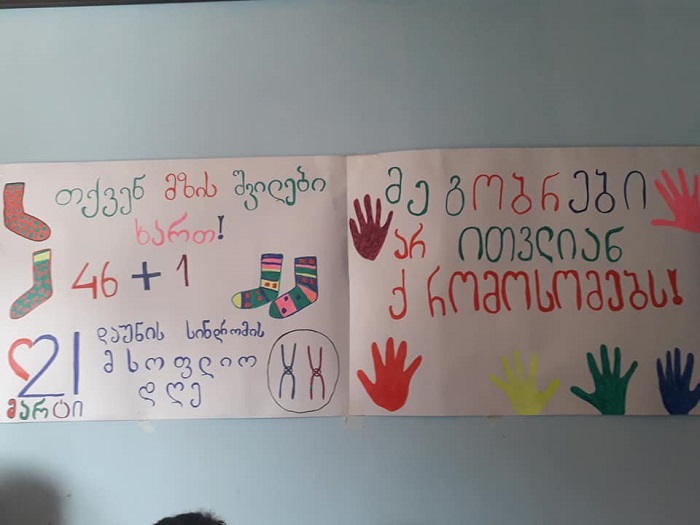 თქვენ მზის შვილები
ხართ!
46 + 1
21
მარტი
დაუნის სინდრომის
მსოფლიო
დღე
მეგობრები
არ ითვლიან
ქრომოსომებს!